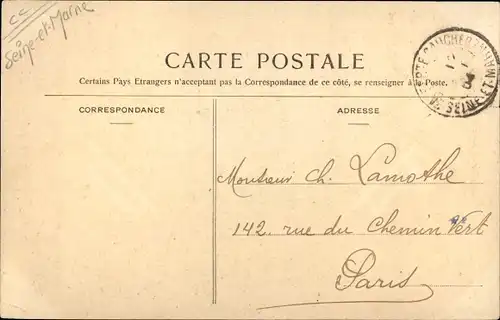 CC
Seine-et-Marne
CARTE POSTALE
Certains Pays Etrangers n'acceptant pas la Correspondance de ce côté, se renseigner à la Poste.
CORRESPONDANCE
ADRESSE
Monsieur Ch. Lamothe
142. rue du Chemin Vert
Paris
LA FERTÉ GAUCHER
SEINE-ET-MARNE